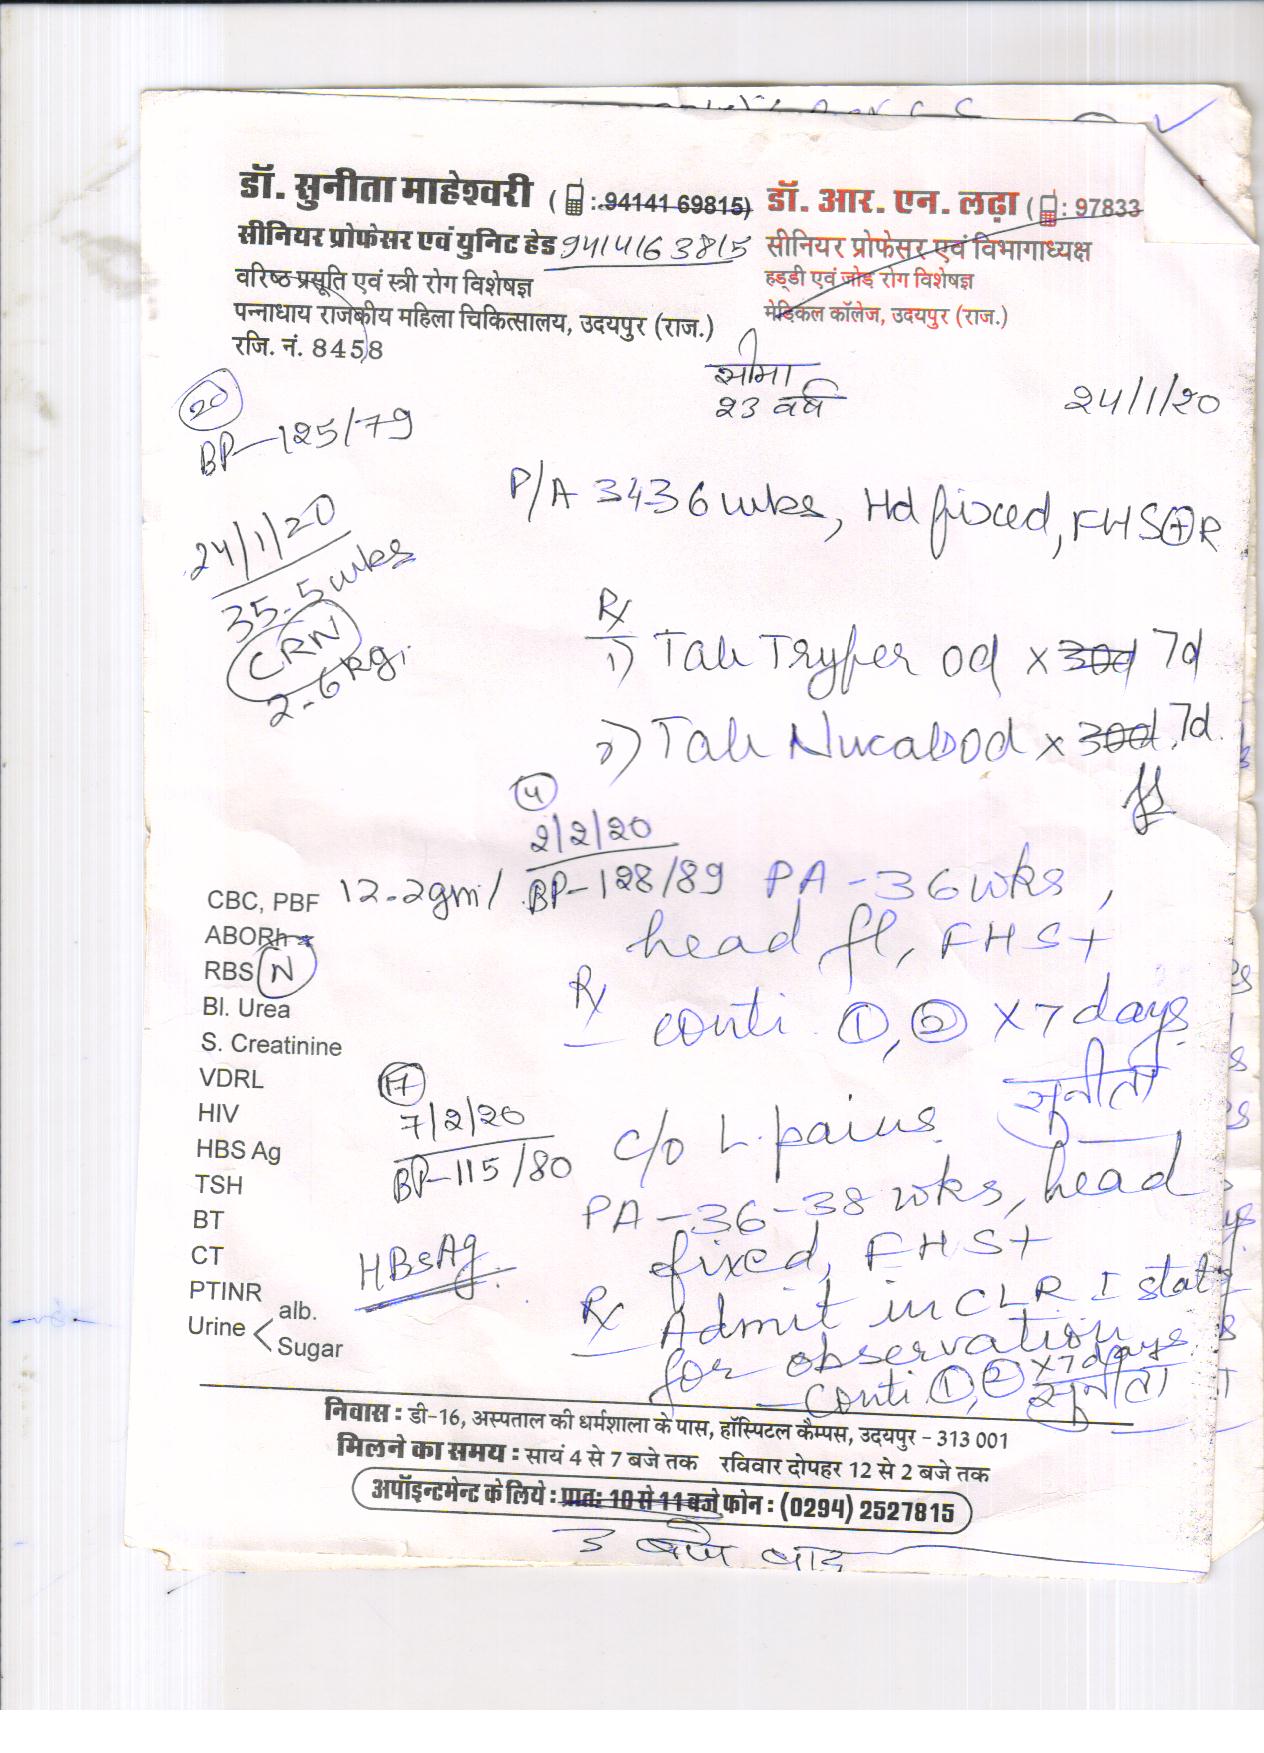 डॉ. सुनीता माहेश्वरी ( : 94141 69815)
सीनियर प्रोफेसर एवं युनिट हेड 9414163815
वरिष्ठ प्रसूति एवं स्त्री रोग विशेषज्ञ
पन्नाधाय राजकीय महिला चिकित्सालय, उदयपुर (राज.)
रजि. नं. 8458
डॉ. आर. एन. लढ़ा ( : 97833
सीनियर प्रोफेसर एवं विभागाध्यक्ष
हड्डी एवं जोड़ रोग विशेषज्ञ
मेडिकल कॉलेज, उदयपुर (राज.)
सीमा
२3 वर्ष
२4/1/२0
20
BP-1२5/79
24/1/20
35.5 wks
CRN
2-6 kg.
P/A 3436 wks, Hd fixed, FHS+R
Rx
1) Tab Tryfer od x 30d 7d
2) Tab Nucab od x 30d 7d.
4
२/२/२0
BP-1२8/89
PA-36 wks,
head fl, FHS+
Rx
conti. 1, 2 x 7 days
सुनीता
CBC, PBF 12.2gm/
ABORh
RBS N
Bl. Urea
S. Creatinine
VDRL
HIV
HBS Ag
TSH
BT
CT
PTINR
Urine < alb.
Sugar
17
7/२/२0
BP-115/80
HBsAg
c/o L. pains
PA-36-38 wks, head
fixed, FHS+
Rx
Admit in CLR I stat
for observation
conti 1, 2 x 7 days
सुनीता
निवास : डी-16, अस्पताल की धर्मशाला के पास, हॉस्पिटल कैम्पस, उदयपुर - 313 001
मिलने का समय : सायं 4 से 7 बजे तक रविवार दोपहर 12 से 2 बजे तक
अपॉइन्टमेन्ट के लिये : प्रातः 10 से 11 बजे फोन : (0294) 2527815
3 बजे बाद